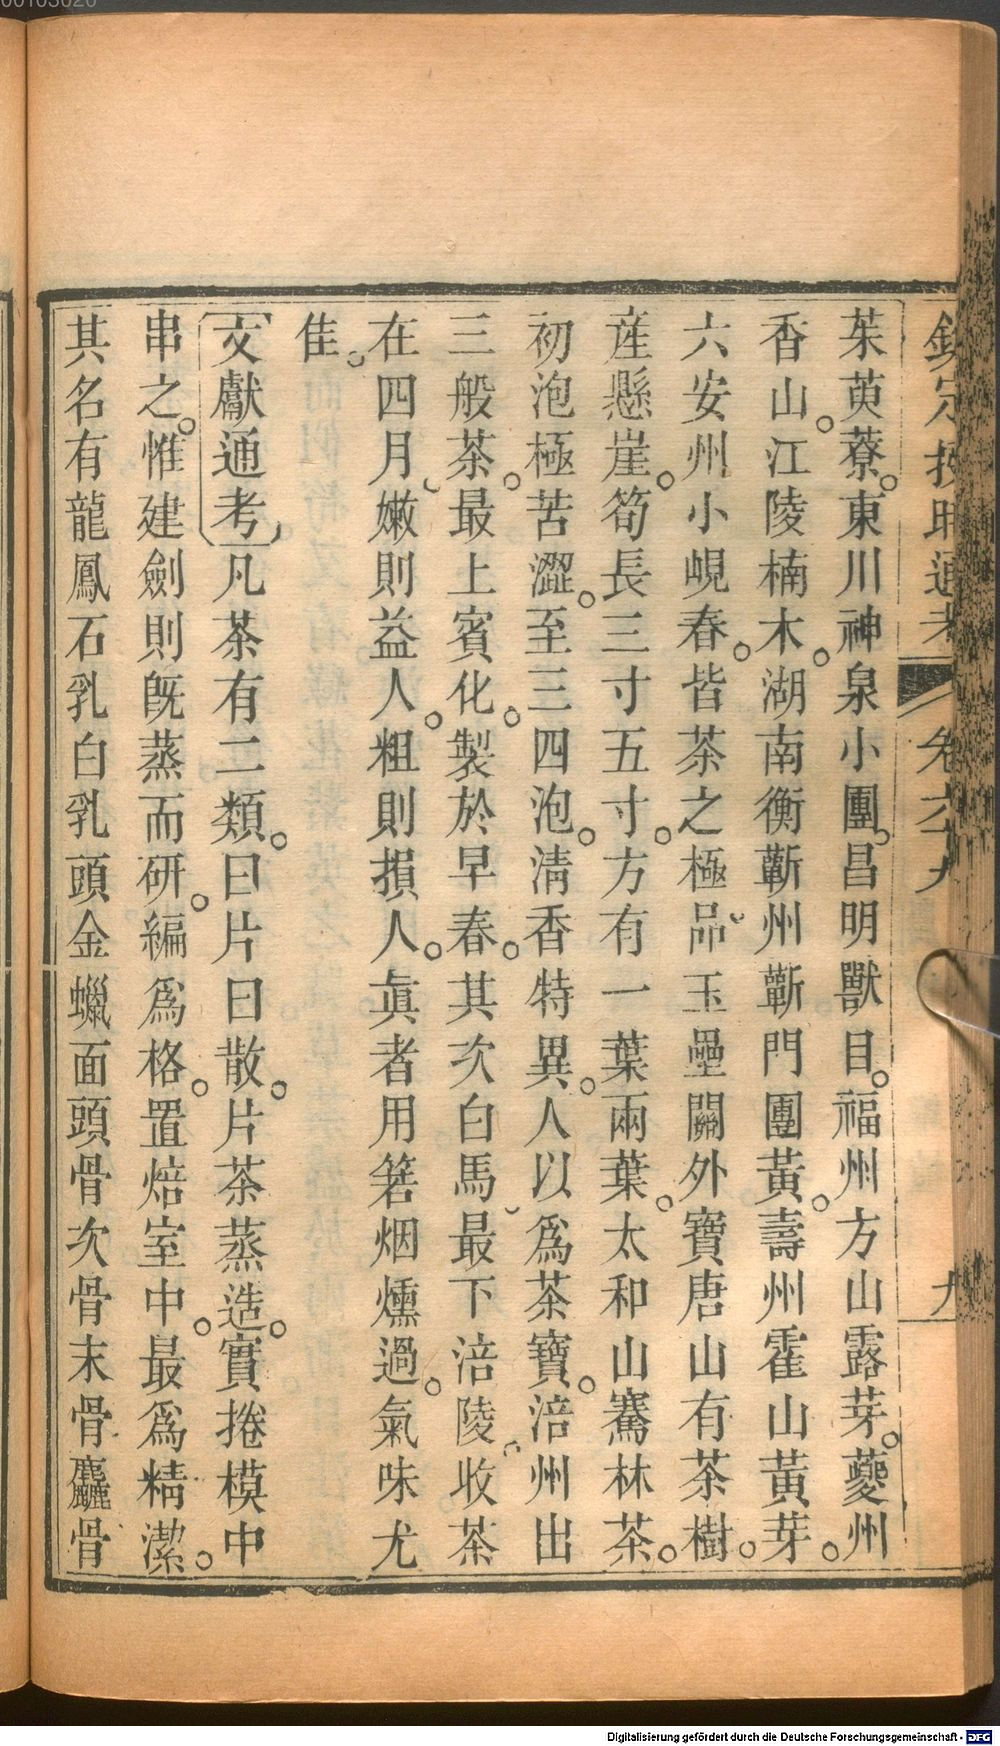 欽定授時通考 卷六九 九
茱萸藔。東川神泉小團。昌明獸目。福州方山露芽。夔州
香山。江陵楠木。湖南衡蘄州蘄門團黃。壽州霍山黃芽。
六安州小峴春。皆茶之極品、玉壘關外寶唐山有茶樹。
產懸崖。筍長三寸五寸。方有一葉兩葉。太和山騫林茶。
初泡極苦澀。至三四泡。淸香特異。人以爲茶寶。涪州出
三般茶。最上賓化。製於早春。其次白馬、最下涪陵、收茶
在四月、嫩則益人。粗則損人。眞者用箬烟燻過。氣味尤
佳。
文獻通考、凡茶有二類。曰片曰散。片茶蒸造。實捲模中
串之。惟建劍則旣蒸而研。編爲格。置焙室中。最爲精潔。
其名有龍鳳石乳白乳頭金蠟面頭骨次骨末骨麤骨
Digitalisierung gefördert durch die Deutsche Forschungsgemeinschaft - DFG